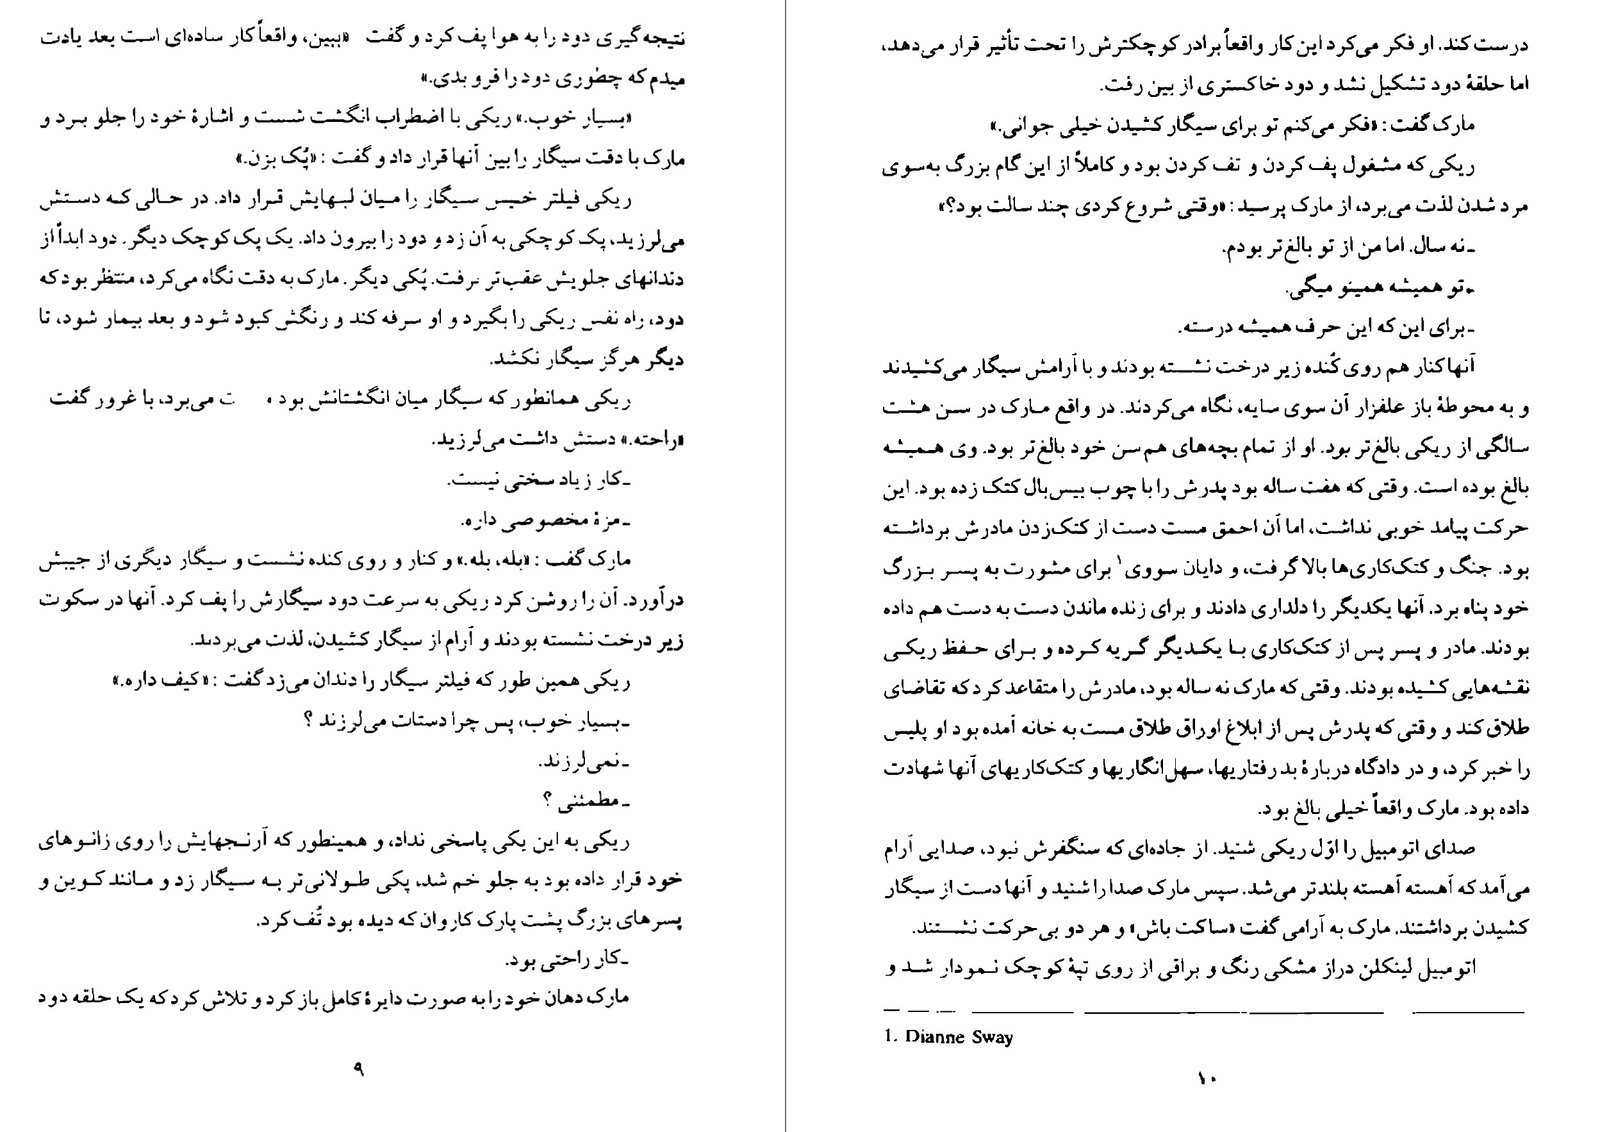 نتیجه‌گیری دود را به هوا پف کرد و گفت «ببین، واقعاً کار ساده‌ای است بعد یادت
میدم که چطوری دود را فرو بدی.»
«بسیار خوب.» ریکی با اضطراب انگشت شست و اشارهٔ خود را جلو برد و
مارک با دقت سیگار را بین آنها قرار داد و گفت : «پُک بزن.»
ریکی فیلتر خیس سیگار را میان لبهایش قرار داد. در حالی که دستش
می‌لرزید، پک کوچکی به آن زد و دود را بیرون داد. یک پک کوچک دیگر. دود ابداً از
دندانهای جلویش عقب‌تر نرفت. پُکی دیگر. مارک به دقت نگاه می‌کرد، منتظر بود که
دود، راه نفس ریکی را بگیرد و او سرفه کند و رنگش کبود شود و بعد بیمار شود، تا
دیگر هرگز سیگار نکشد.
ریکی همانطور که سیگار میان انگشتانش بود و ت می‌برد، با غرور گفت
«راحته.» دستش داشت می‌لرزید.
ـ کار زیاد سختی نیست.
ـ مزهٔ مخصوصی داره.
مارک گفت : «بله، بله.» و کنار و روی کنده نشست و سیگار دیگری از جیبش
درآورد. آن را روشن کرد ریکی به سرعت دود سیگارش را پف کرد. آنها در سکوت
زیر درخت نشسته بودند و آرام از سیگار کشیدن، لذت می‌بردند.
ریکی همین طور که فیلتر سیگار را دندان می‌زد گفت : «کیف داره.»
ـ بسیار خوب، پس چرا دستات می‌لرزند ؟
ـ نمی‌لرزند.
ـ مطمئنی ؟
ریکی به این یکی پاسخی نداد، و همینطور که آرنجهایش را روی زانوهای
خود قرار داده بود به جلو خم شد، پکی طولانی‌تر به سیگار زد و مانند کوین و
پسرهای بزرگ پشت پارک کاروان که دیده بود تُف کرد.
ـ کار راحتی بود.
مارک دهان خود را به صورت دایرهٔ کامل باز کرد و تلاش کرد که یک حلقه دود
۹
درست کند. او فکر می‌کرد این کار واقعاً برادر کوچکترش را تحت تأثیر قرار می‌دهد،
اما حلقهٔ دود تشکیل نشد و دود خاکستری از بین رفت.
مارک گفت : «فکر می‌کنم تو برای سیگار کشیدن خیلی جوانی.»
ریکی که مشغول پف کردن و تف کردن بود و کاملاً از این گام بزرگ به‌سوی
مرد شدن لذت می‌برد، از مارک پرسید : «وقتی شروع کردی چند سالت بود؟»
ـ نه سال. اما من از تو بالغ‌تر بودم.
ـ تو همیشه همینو میگی.
ـ برای این که این حرف همیشه درسته.
آنها کنار هم روی کُنده زیر درخت نشسته بودند و با آرامش سیگار می‌کشیدند
و به محوطهٔ باز علفزار آن سوی سایه، نگاه می‌کردند. در واقع مارک در سن هشت
سالگی از ریکی بالغ‌تر بود. او از تمام بچه‌های هم‌سن خود بالغ‌تر بود. وی همیشه
بالغ بوده است. وقتی که هفت ساله بود پدرش را با چوب بیس‌بال کتک زده بود. این
حرکت پیامد خوبی نداشت، اما آن احمق مست دست از کتک‌زدن مادرش برداشته
بود. جنگ و کتک‌کاری‌ها بالا گرفت، و دایان سووی۱ برای مشورت به پسر بزرگ
خود پناه برد. آنها یکدیگر را دلداری دادند و برای زنده ماندن دست به دست هم داده
بودند. مادر و پسر پس از کتک‌کاری با یکدیگر گریه کرده و برای حفظ ریکی
نقشه‌هایی کشیده بودند. وقتی که مارک نه ساله بود، مادرش را متقاعد کرد که تقاضای
طلاق کند و وقتی که پدرش پس از ابلاغ اوراق طلاق مست به خانه آمده بود او پلیس
را خبر کرد، و در دادگاه دربارهٔ بدرفتاریها، سهل‌انگاریها و کتک‌کاریهای آنها شهادت
داده بود. مارک واقعاً خیلی بالغ بود.
صدای اتومبیل را اوّل ریکی شنید. از جاده‌ای که سنگفرش نبود، صدایی آرام
می‌آمد که آهسته آهسته بلندتر می‌شد. سپس مارک صدا را شنید و آنها دست از سیگار
کشیدن برداشتند. مارک به آرامی گفت «ساکت باش» و هر دو بی‌حرکت نشستند.
اتومبیل لینکلن دراز مشکی رنگ و براقی از روی تپهٔ کوچک نمودار شد و
1. Dianne Sway
۱۰